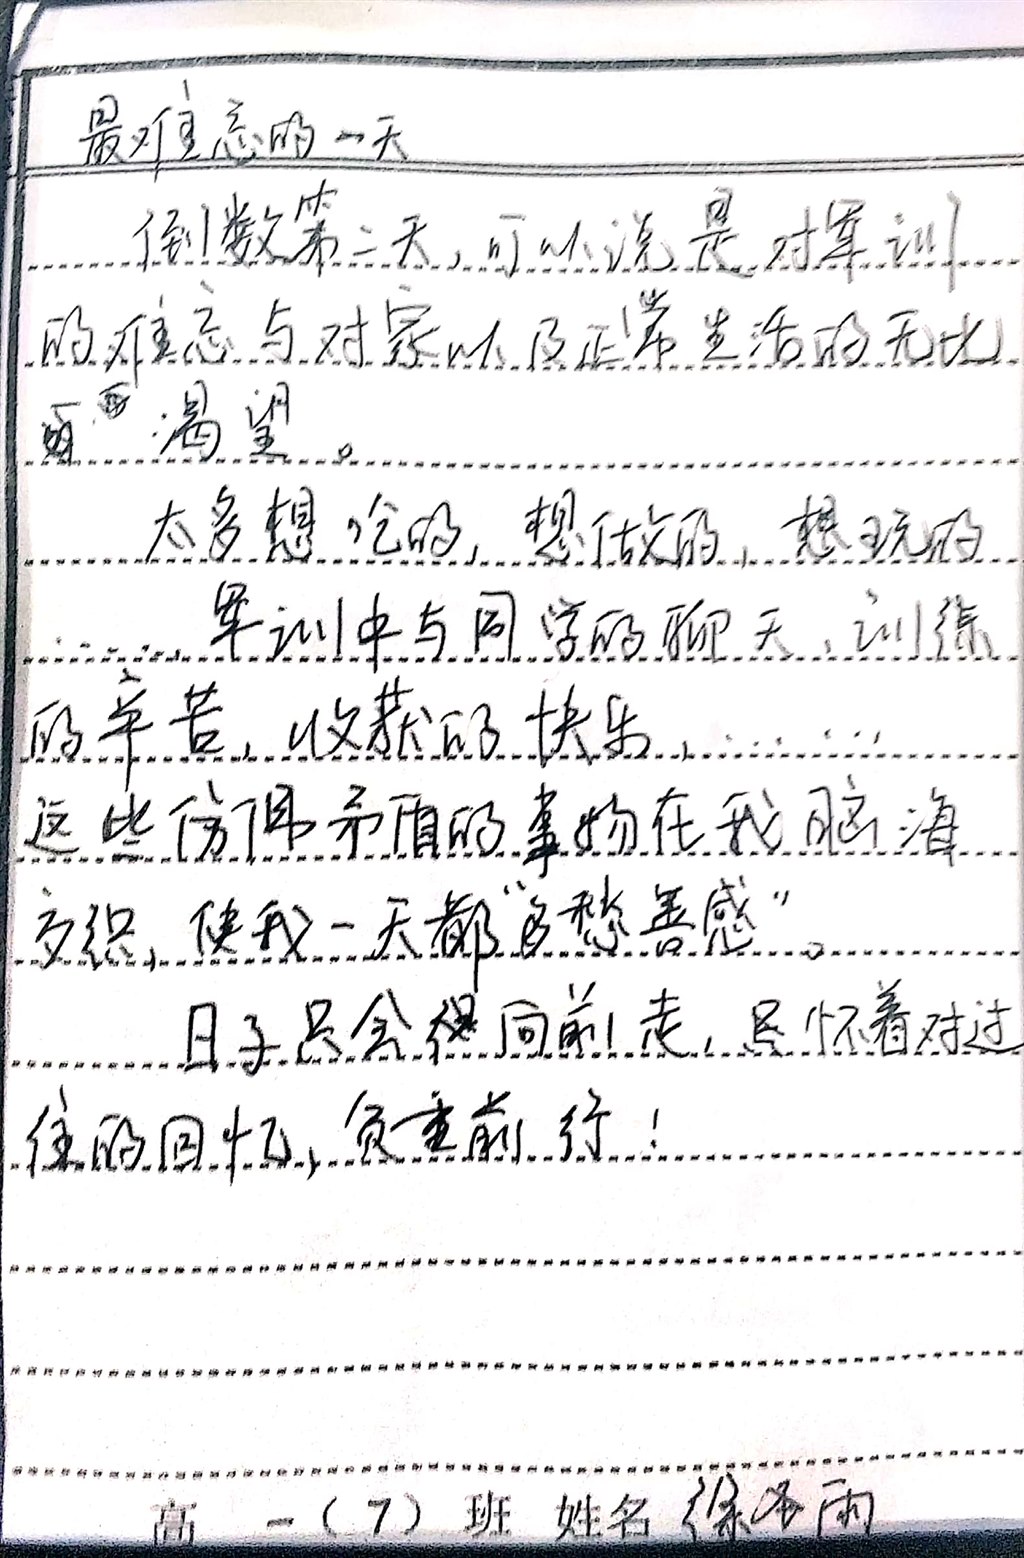 最难忘的一天
倒数第二天,可以说是对军训
的难忘与对家以及正常生活的无比
渴望。
太多想吃的,想做的,想玩的
……,军训中与同学的聊天、训练
的辛苦,收获的快乐,……,
这些仿佛矛盾的事物在我脑海
交织,使我一天都“多愁善感”。
日子只会得向前走,只怀着对过
往的回忆,负重前行!
高一(7)班 姓名 徐冬雨